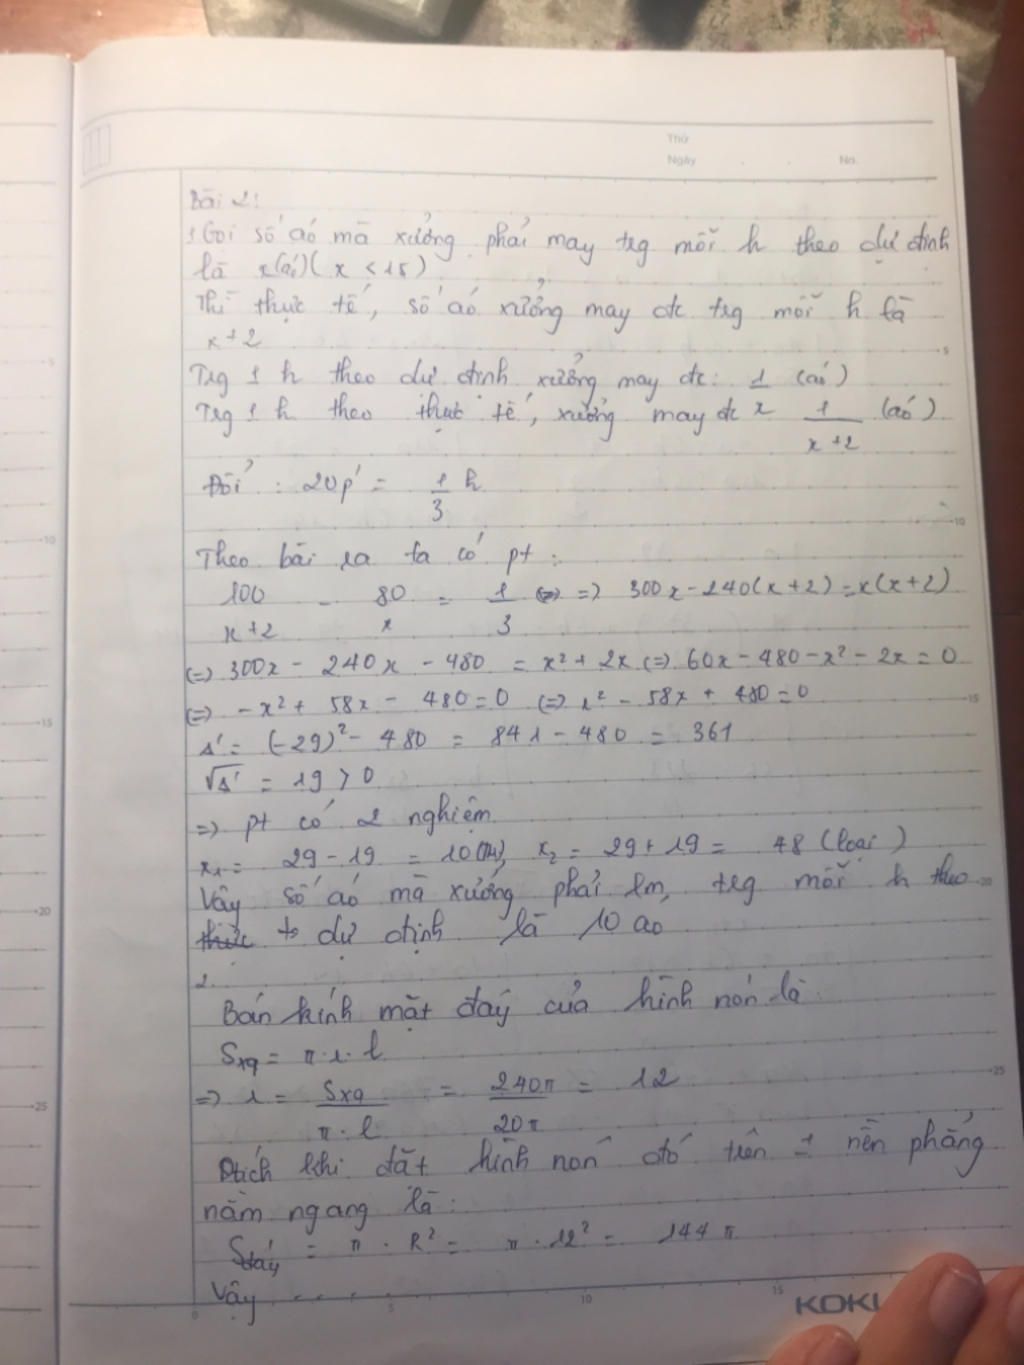 Thứ
Ngày . . No.
Bài 2:
1. Gọi số áo mà xưởng phải may trg mỗi h theo dự định
là x(áo)( x < 15)
Thì thực tế, số áo xưởng may đc trg mỗi h là
x+2
Trg 1 h theo dự định xưởng may đc: 1/x (áo)
Trg 1 h theo thực tế, xưởng may đc 1/(x+2) (áo)
Đổi : 20p' = 1/3 h
Theo bài ra ta có pt :
100/(x+2) - 80/x = 1/3 => 300x - 240(x+2) = x(x+2)
(=) 300x - 240x - 480 = x² + 2x (=) 60x - 480 - x² - 2x = 0
(=) - x² + 58x - 480 = 0 (=) x² - 58x + 480 = 0
Δ' = (-29)² - 480 = 841 - 480 = 361
√Δ' = 19 > 0
=> pt có 2 nghiệm
x₁ = 29 - 19 = 10 (TM), x₂ = 29 + 19 = 48 (loại)
Vậy số áo mà xưởng phải lm, trg mỗi h theo
thực tế dự định là 10 áo
2.
Bán kính mặt đáy của hình nón là
Sxq = π.r.l
=> r = Sxq/(π.l) = 240π/20π = 12
Dtích khi đặt hình nón đó trên 1 nền phẳng
nằm ngang là :
Sđáy = π . R² = π . 12² = 144 π
Vậy . . . .
5
10
15
20
25
-10
15
20
25
0
5
10
15
KOKU